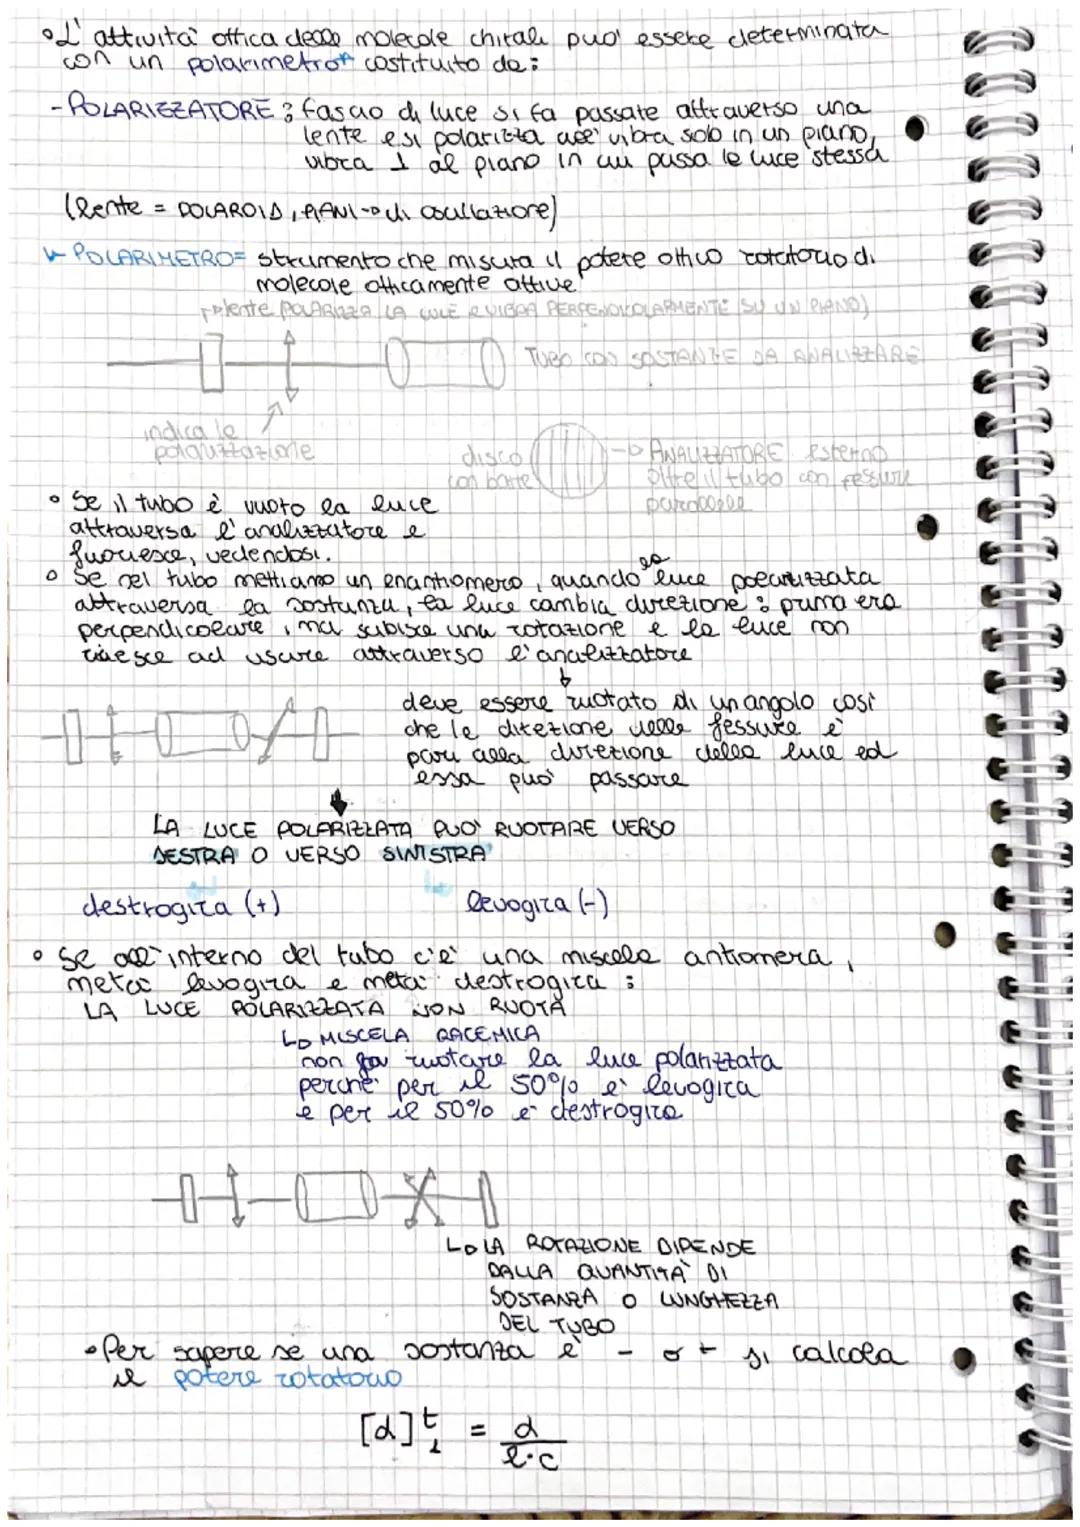 • L' attività ottica delle molecole chirali puo' essere determinata
con un polarimetro costituito da:
- POLARIZZATORE: fascio di luce si fa passare attraverso una
lente e si polarizza cioe' vibra solo in un piano,
vibra ⊥ al piano in cui passa la luce stessa
(lente = POLAROID, PIANI → di oscillazione)
POLARIMETRO = strumento che misura il potere ottico rotatorio di
molecole otticamente attive
lente POLARIZZA LA LUCE E VIBRA PERPENDICOLARMENTE SU UN PIANO)
TUBO CON SOSTANZE DA ANALIZZARE
indica la
polarizzazione
disco
con barre
→ ANALIZZATORE esterno
oltre il tubo con fessure
parallele
• Se il tubo è vuoto la luce
attraversa l'analizzatore e
fuoriesce, vedendosi.
• Se nel tubo mettiamo un enantiomero, quando la luce polarizzata
attraversa la sostanza, la luce cambia direzione: prima era
perpendicolare, ma subisce una rotazione e la luce non
riesce ad uscire attraverso l'analizzatore
deve essere ruotato di un angolo cosi
che la direzione delle fessure è
pari alla direzione della luce ed
essa può passare
LA LUCE POLARIZZATA PUO' RUOTARE VERSO
DESTRA O VERSO SINISTRA
destrogira (+)
levogira (-)
• Se all'interno del tubo c'è una miscela antiomera,
metà levogira e metà destrogira:
LA LUCE POLARIZZATA NON RUOTA
↳ MISCELA RACEMICA
non fa ruotare la luce polarizzata
perché per il 50% è levogira
e per il 50% è destrogira
↳ LA ROTAZIONE DIPENDE
DALLA QUANTITÀ DI
SOSTANZA O LUNGHEZZA
DEL TUBO
• Per sapere se una sostanza è - o + si calcola
il potere rotatorio
[α]ᵗ = α / l·c